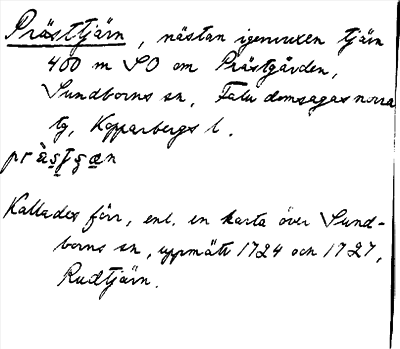 Prästtjärn, nästan igenvuxen tjärn
400 m SO om Prästgården,
Sundborns sn, Falu domsagas norra
tg, Kopparbergs l.
Kallades förr, enl. en karta över Sund-
borns sn, uppmätt 1724 och 1727,
Rudtjärn.